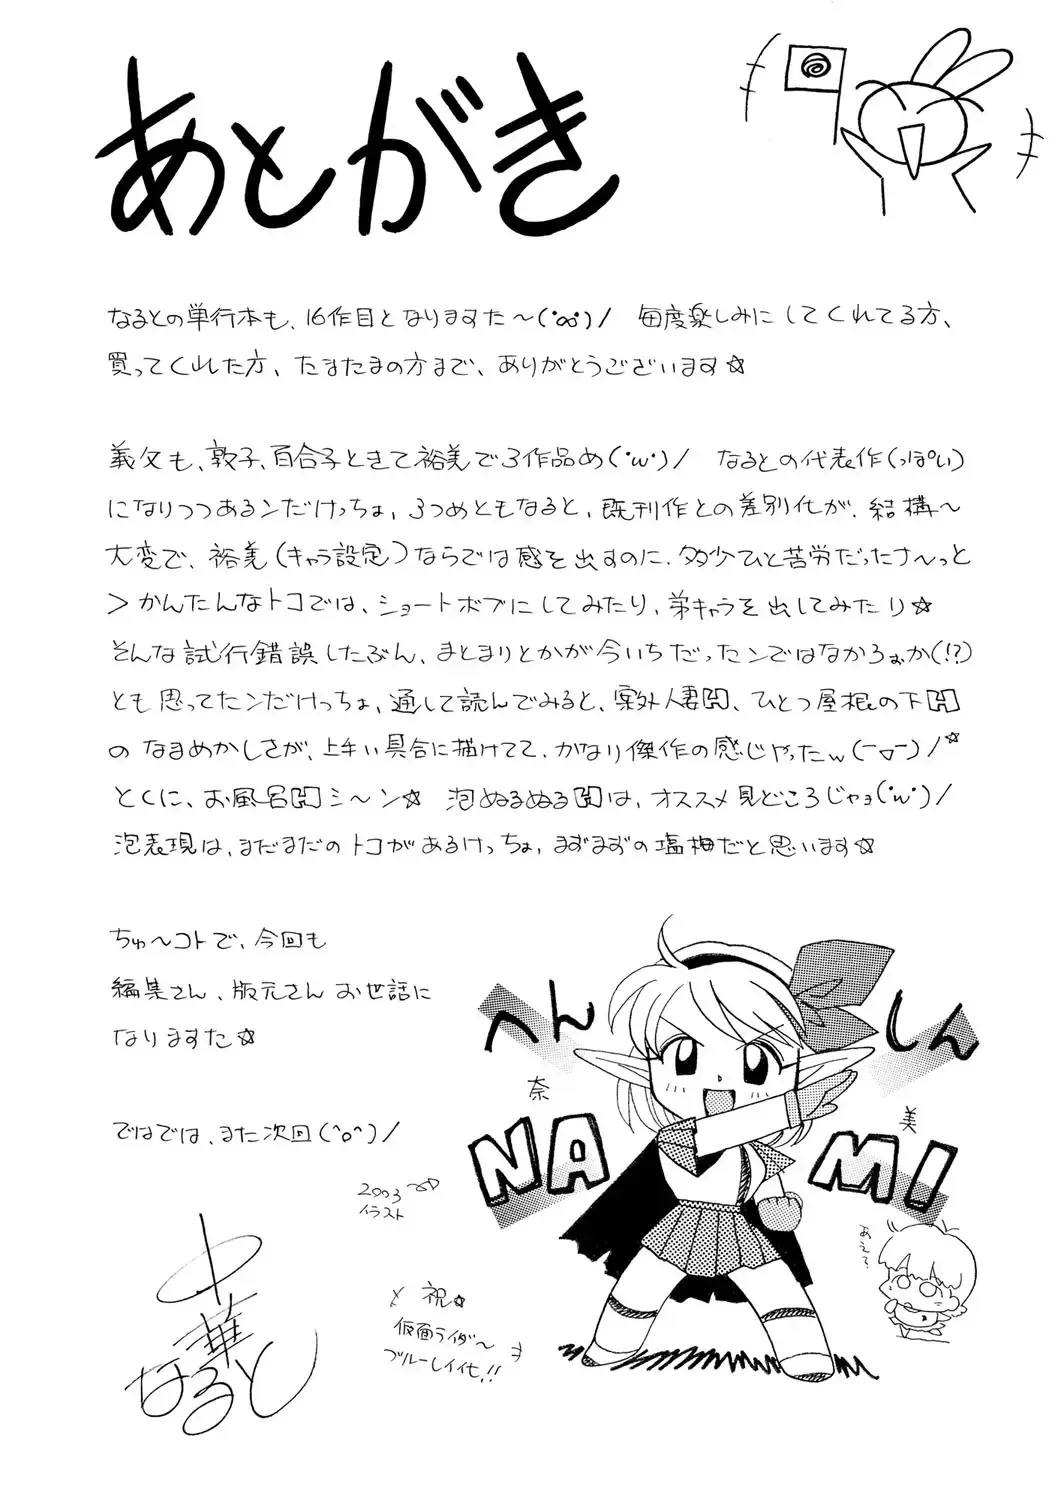 あとがき
なるとの単行本も、16作目となりますた～(°∞°)/ 毎度楽しみにしてくれてる方、
買ってくれた方、たまたまの方まで、ありがとうございます☆
義父も、敦子、百合子ときて裕美で3作品め('w')/ なるとの代表作(っぽい)
になりつつあるンだけっちょ、3つめともなると、既刊作との差別化が、結構～
大変で、裕美(キャラ設定)ならでは感を出すのに、多少ひと苦労だったナ～っと
>かんたんなトコでは、ショートボブにしてみたり、弟キャラを出してみたり☆
そんな試行錯誤したぶん、まとまりとかが今いちだったンではなかろぉか(!?)
とも思ってたンだけっちょ、通して読んでみると、案外人妻H、ひとつ屋根の下H
のなまめかしさが、上手い具合に描けてて、かなり傑作の感じやったw(￣▽￣)/*
とくに、お風呂Hシ～ン☆ 泡ぬるぬるHは、オススメ見どころじゃョ('w')/
泡表現は、まだまだのトコがあるけっちょ、まずまずの塩梅だと思います☆
ちゅ～コトで、今回も
編集さん、版元さんお世話に
なりますた☆
ではでは、また次回(^o^)/
へん しん
奈 美
NA MI
2003
イラスト
あえて?
と 祝☆
仮面ライダ～
ブルーレイ化!!
中華
なると